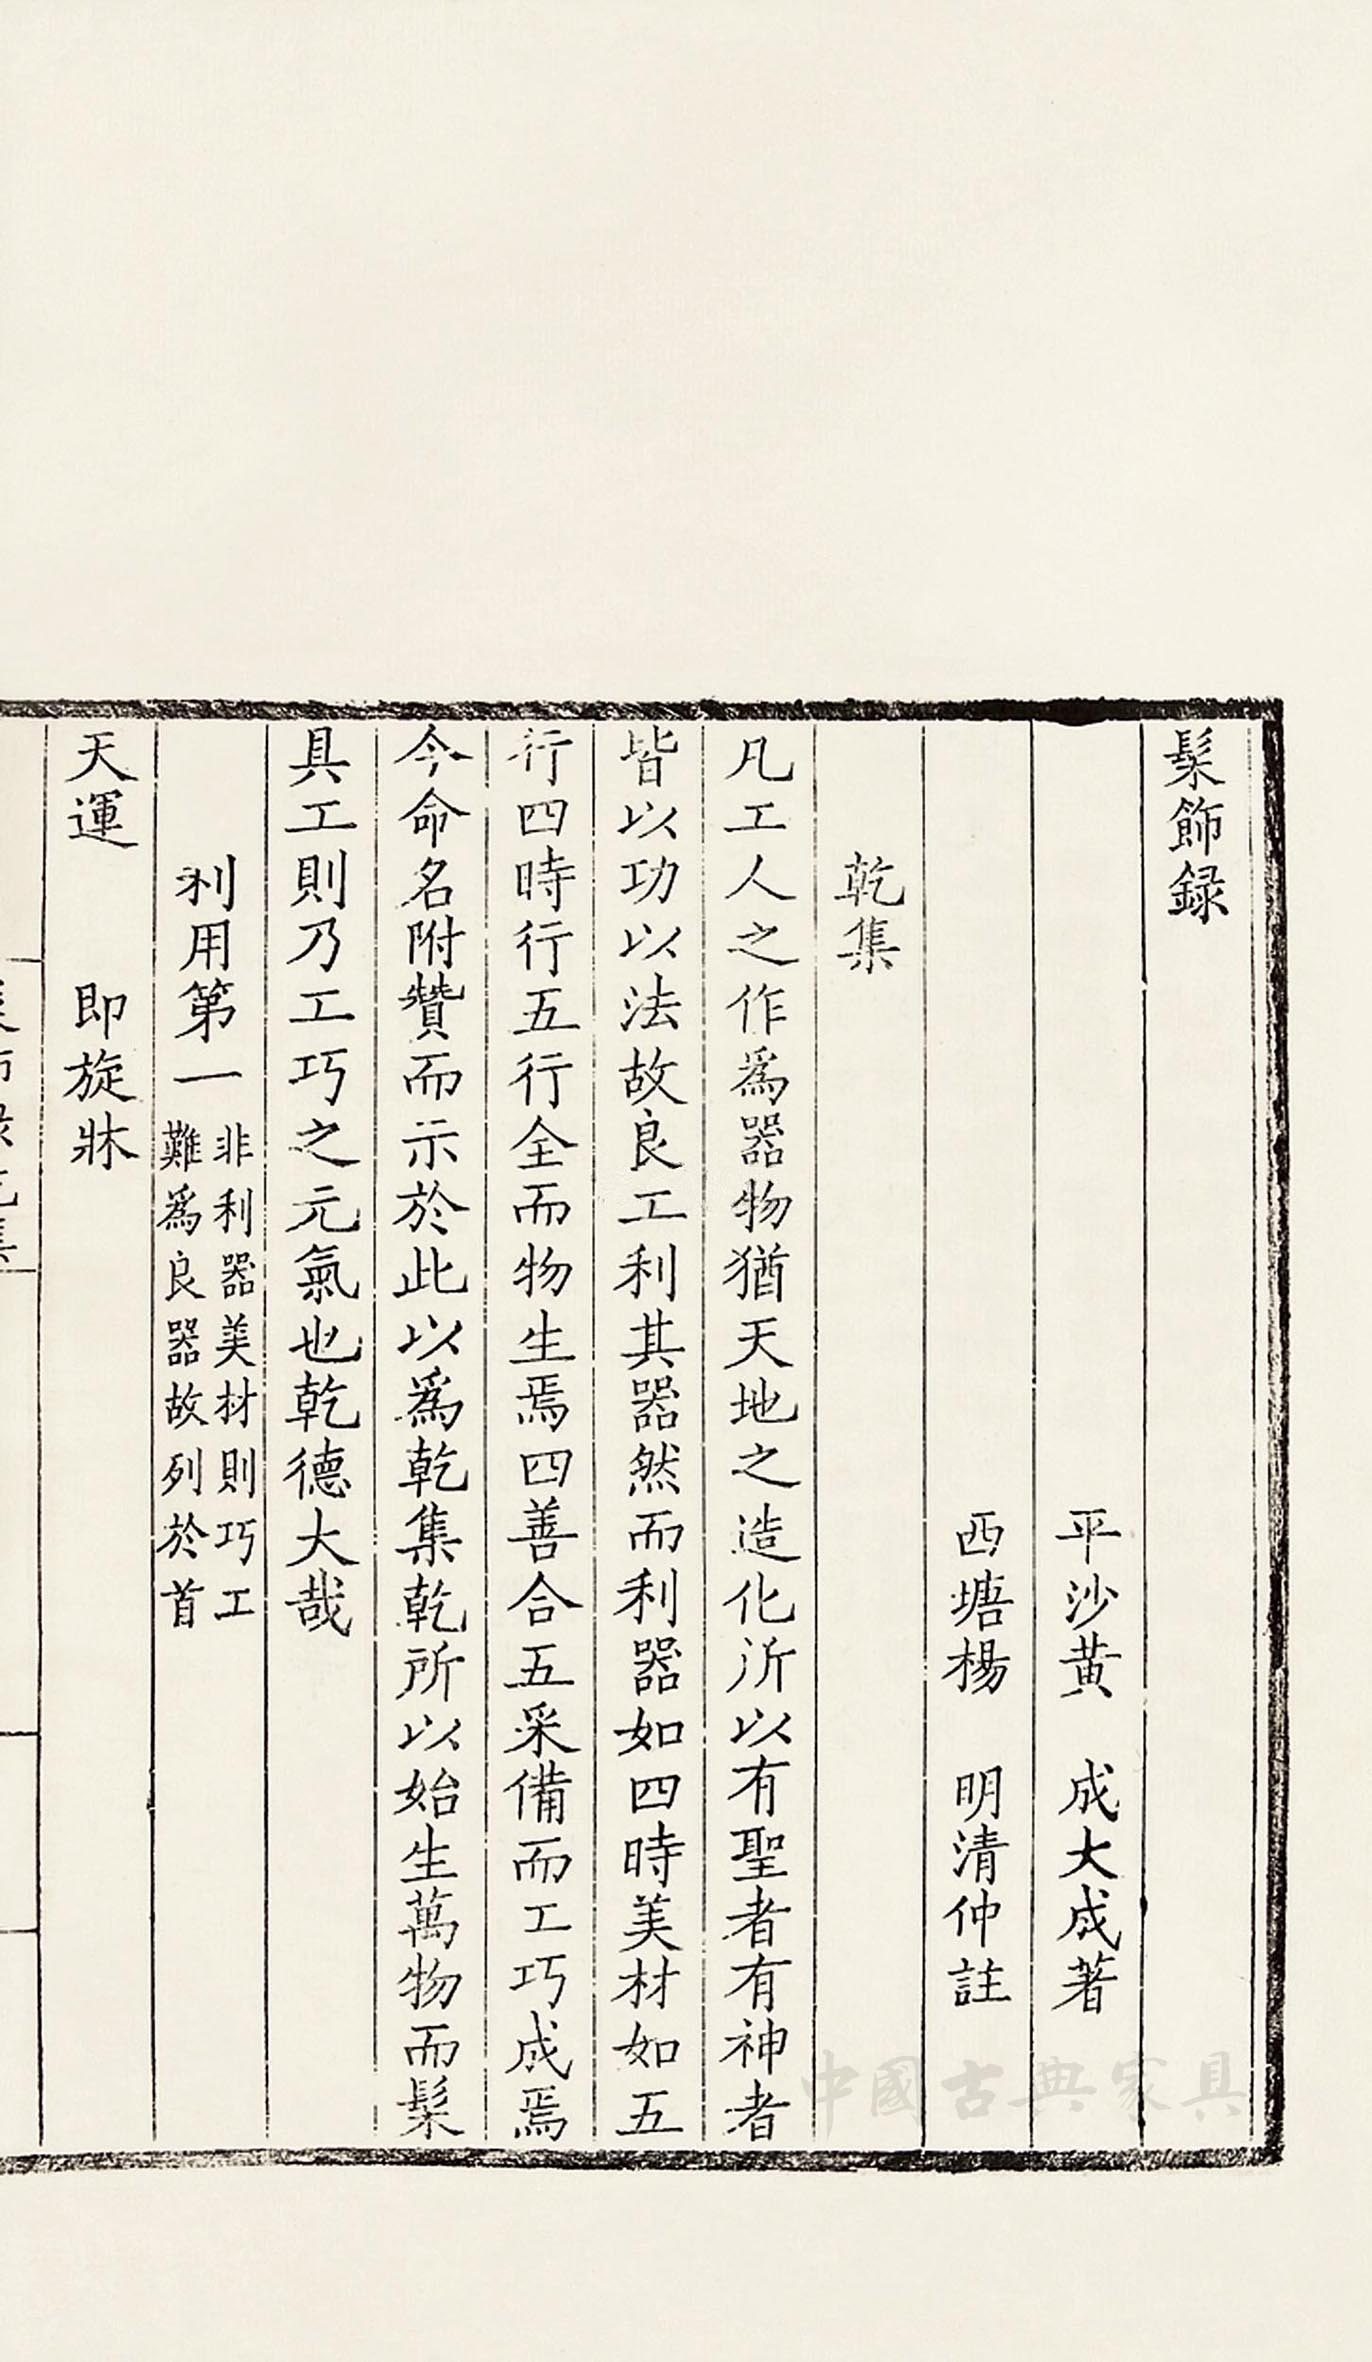 髹飾録
平沙黄　成大成著
西塘楊　明清仲註
乾集
凡工人之作爲器物猶天地之造化所以有聖者有神者
皆以功以法故良工利其器然而利器如四時美材如五
行四時行五行全而物生焉四善合五采備而工巧成焉
今命名附贊而示於此以爲乾集乾所以始生萬物而髹
具工則乃工巧之元氣也乾德大哉
利用第一 非利器美材則巧工
難爲良器故列於首
天運　即旋牀
中國古典家具